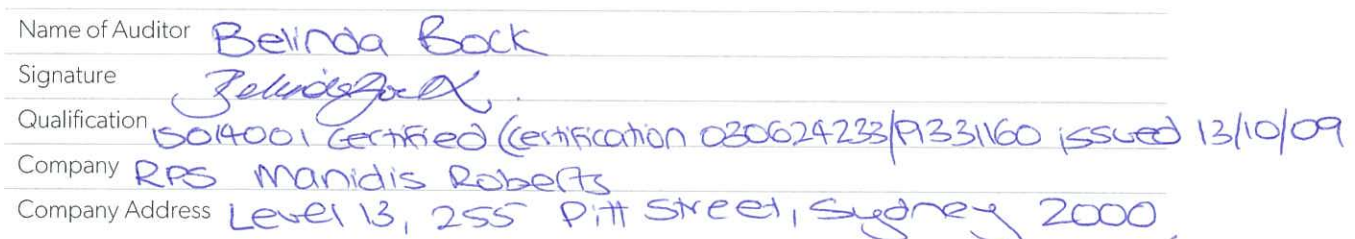 Name of Auditor Belinda Bock
Signature Belinda Bock
Qualification ISO14001 Certified (Certification 030624233/A1331160 issued 13/10/09
Company RPS Manidis Roberts
Company Address Level 13, 255 Pitt Street, Sydney 2000.